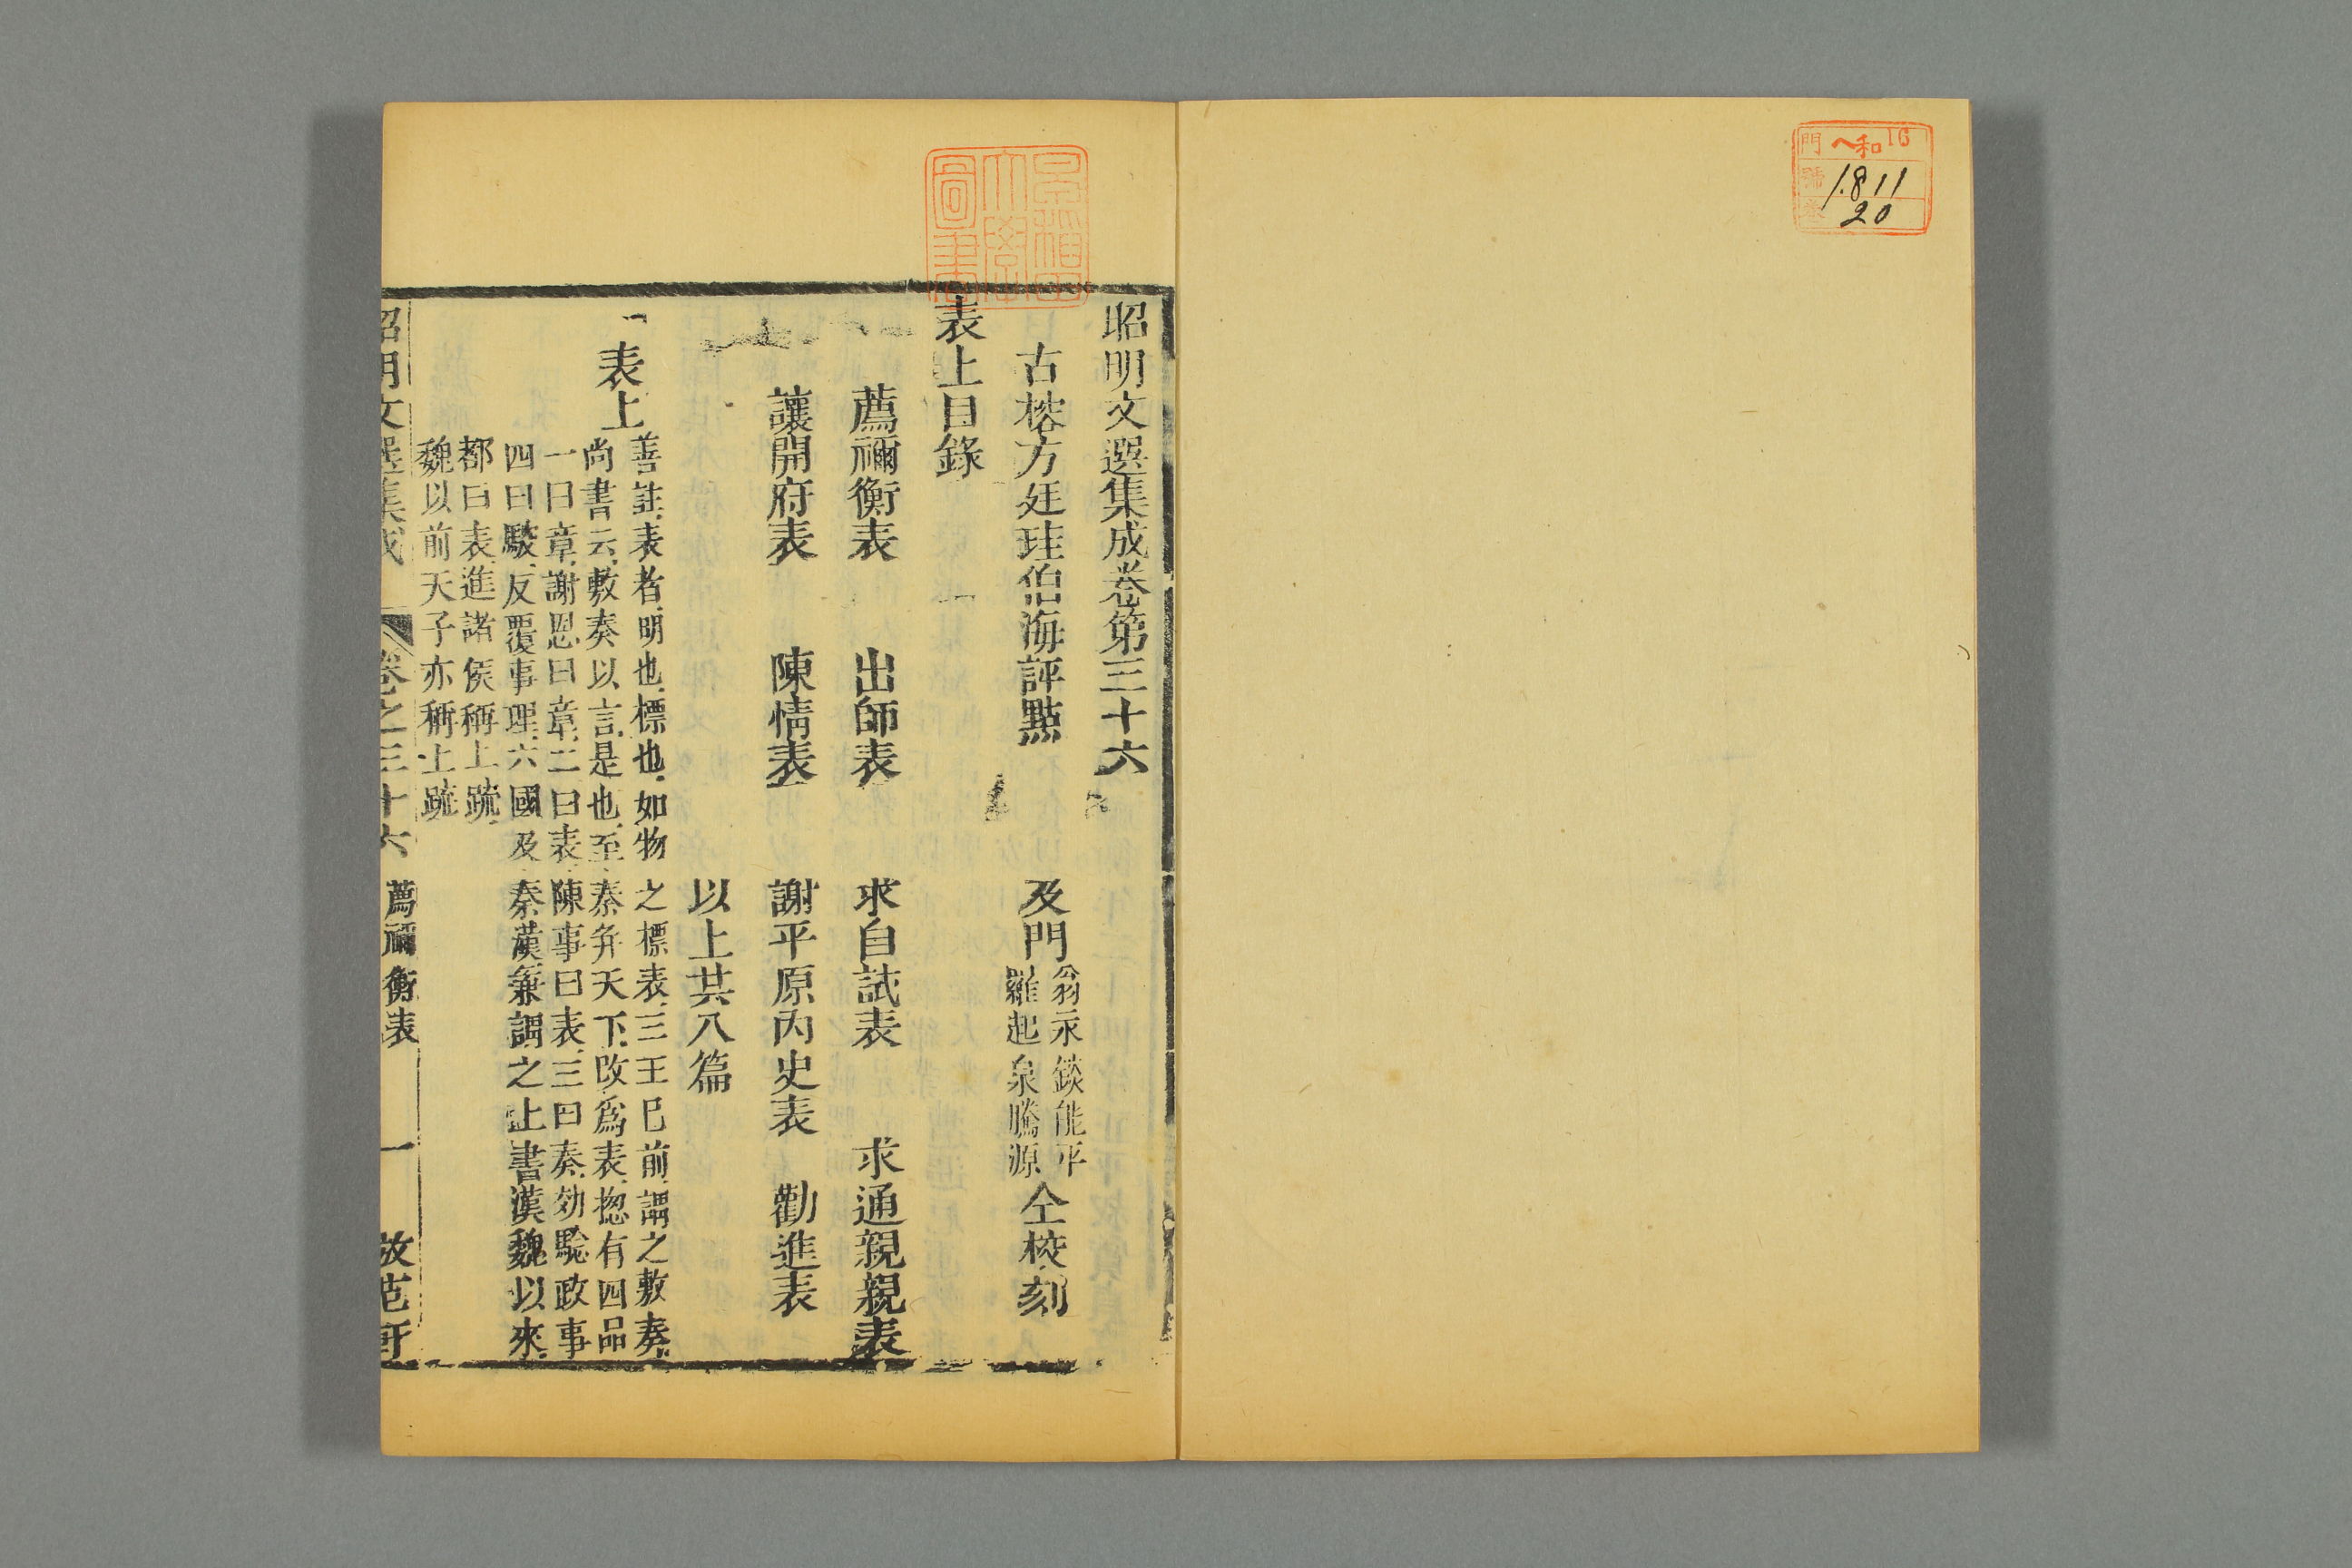 門 ヘ和16
號 1811
20
昭明文選集成卷第三十六
古榕方廷珪伯海評點
及門
翁永錟能平
羅起泉騰源
仝校刻
早稻田大學圖書
表上目錄
薦禰衡表 出師表 求自試表 求通親親表
讓開府表 陳情表 謝平原內史表 勸進表
以上共八篇
表上
善註表者明也標也如物之標表三王已前謂之敷奏
尚書云敷奏以言是也至秦并天下改爲表揔有四品
一曰章謝恩曰章二曰表陳事曰表三曰奏効驗政事
四曰駮反覆事理六國及秦漢兼謂之上書漢魏以來
都曰表進諸侯稱上䟽
魏以前天子亦稱上䟽
昭明文選集成 卷之三十六 薦禰衡表 一